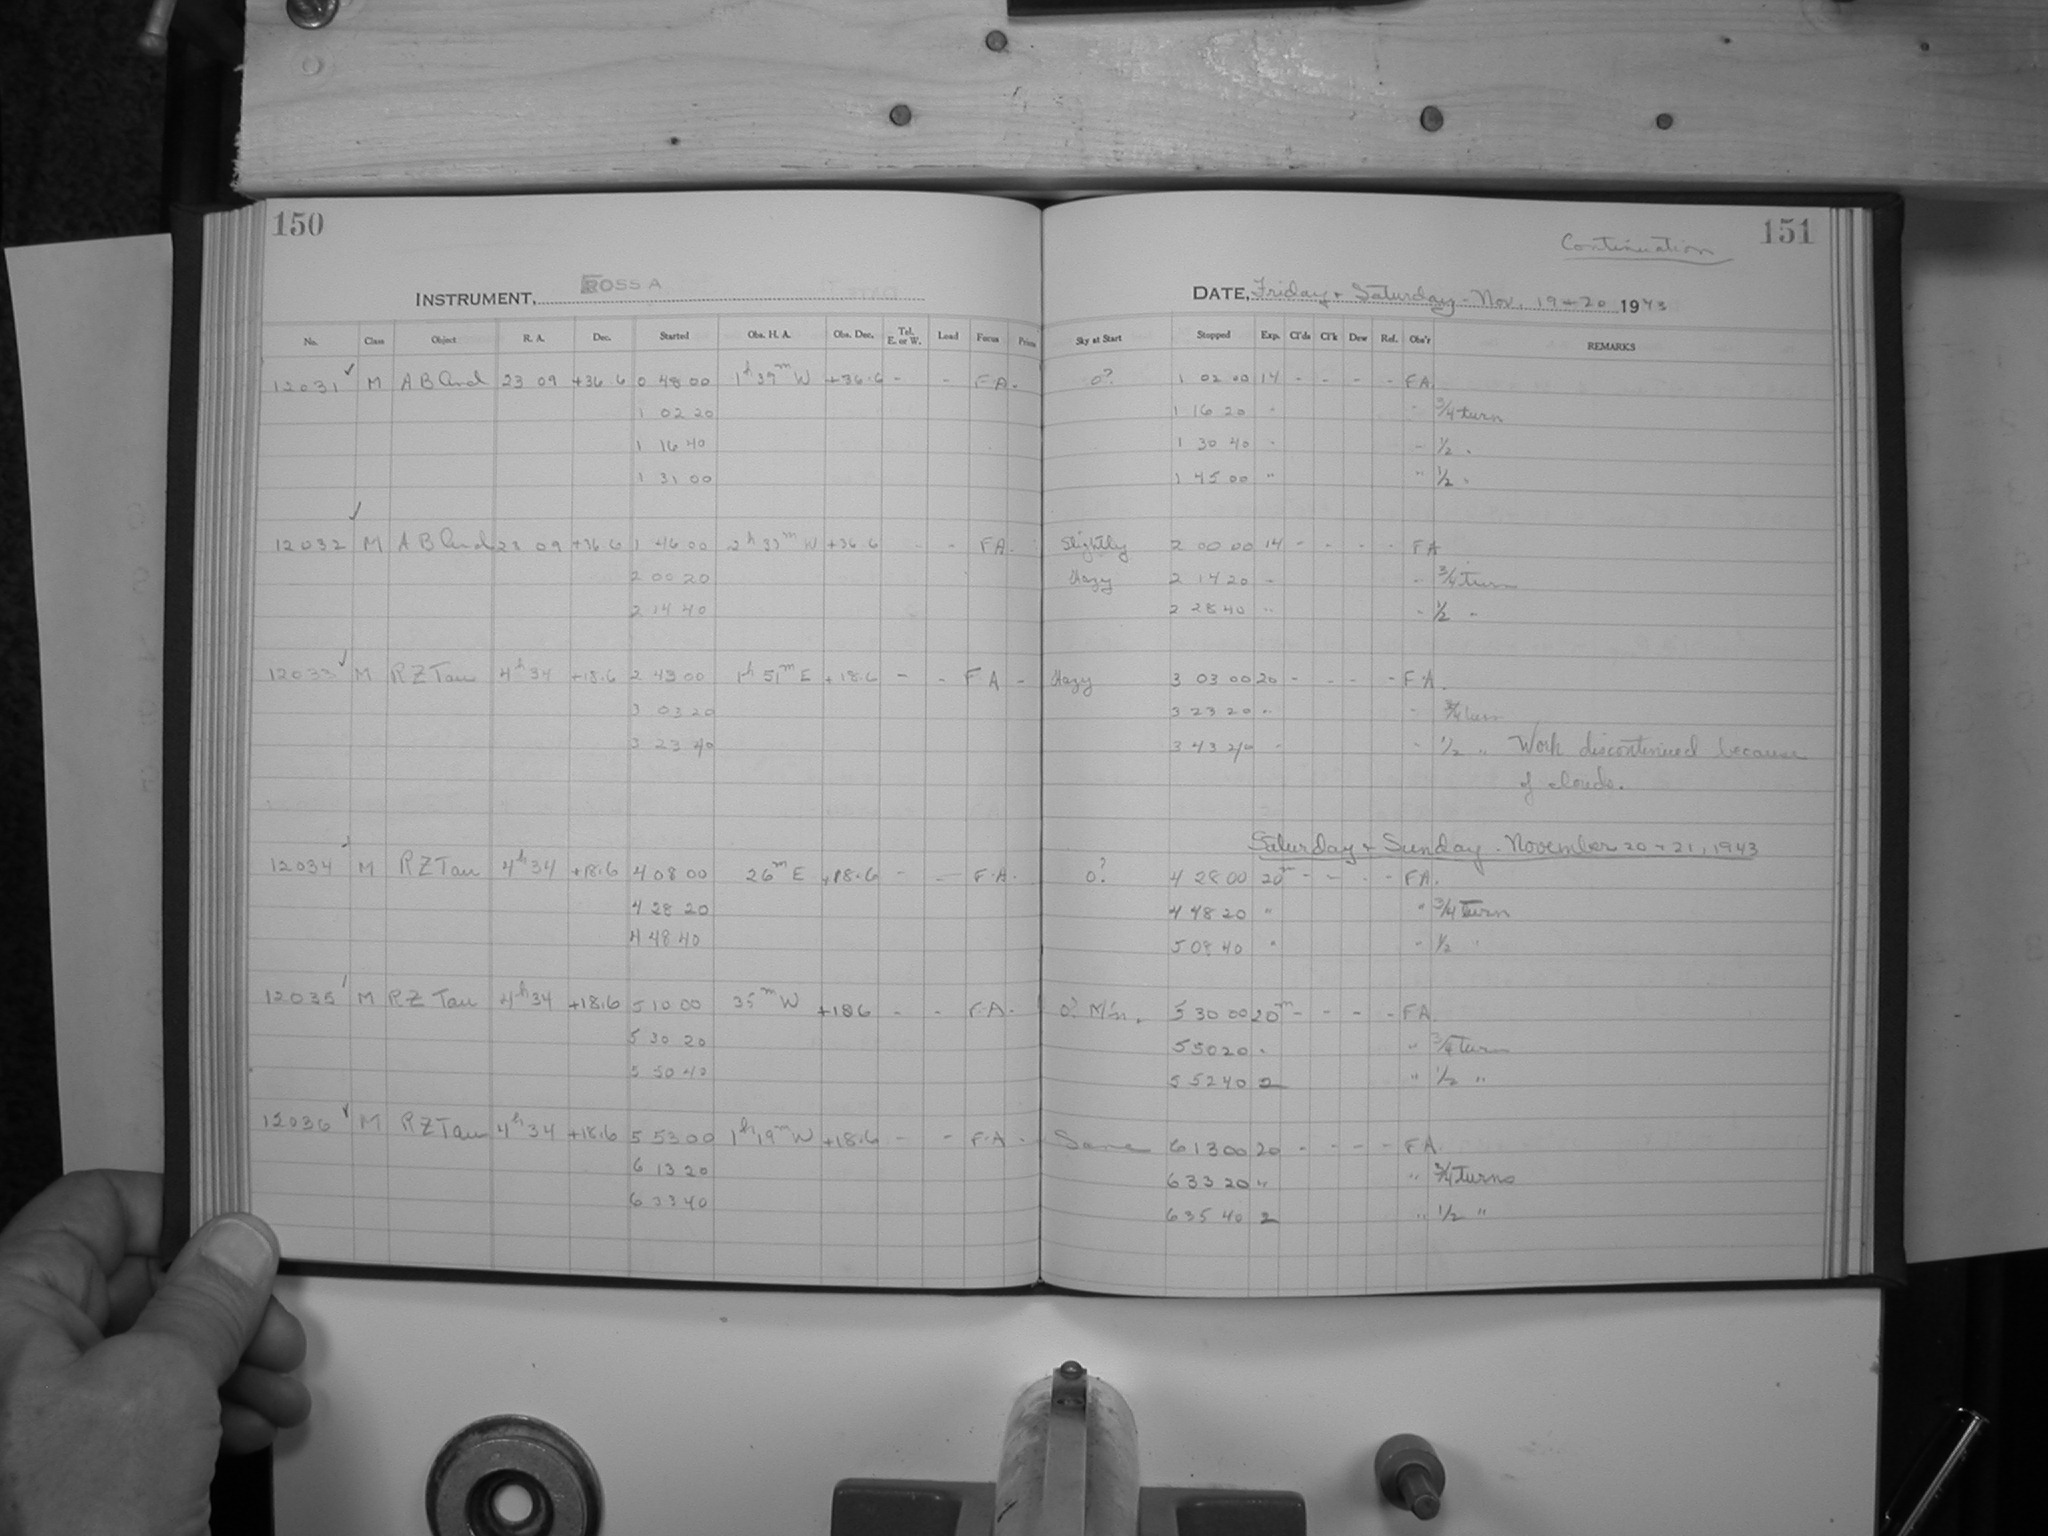 150
INSTRUMENT, ROSS A
No. Class Object R. A. Dec. Started Obs. H. A. Obs. Dec. Tel. E. or W. Load Focus Prism
12031 ✓ M A B And 23 09 +36.6 0 48 00 1h 39m W +36.6 - - F A -
1 02 20
1 16 40
1 31 00
12032 ✓ M A B And 23 09 +36.6 1 46 00 2h 37m W +36.6 - - F A -
2 00 20
2 14 40
12033 ✓ M R Z Tau 4h 34 +18.6 2 43 00 1h 51m E +18.6 - - F A -
3 03 20
3 23 40
12034 ✓ M R Z Tau 4h 34 +18.6 4 08 00 26m E +18.6 - - F.A.
4 28 20
4 48 40
12035 ✓ M R Z Tau 4h 34 +18.6 5 10 00 35m W +18 6 - - F.A.
5 30 20
5 50 40
12036 ✓ M R Z Tau 4h 34 +18.6 5 53 00 1h 19m W +18.6 - - F.A -
6 13 20
6 33 40
Continuation 151
DATE, Friday + Saturday - Nov. 19 + 20 1943
Sky at Start Stopped Exp. Cl'ds Cl'k Dew Ref. Obs'r REMARKS
0? 1 02 00 14 - - - - F A.
1 16 20 " " 3/4 turn
1 30 40 " " 1/2 "
1 45 00 " " 1/2 "
Slightly 2 00 00 14 - - - - F A
Hazy 2 14 20 " " 3/4 turn
2 28 40 " " 1/2 "
Hazy 3 03 00 20 - - - - F A.
3 23 20 " " 3/4 turn
3 43 40 " " 1/2 " Work discontinued because
of clouds.
Saturday + Sunday - November 20 + 21, 1943
0? 4 28 00 20m - - - - F A.
4 48 20 " " 3/4 turn
5 08 40 " " 1/2 "
0? 5 30 00 20m - - - - F A.
5 50 20 " " 3/4 turn
5 52 40 2 " 1/2 "
Same 6 13 00 20 - - - - F A
6 33 20 " " 3/4 turns
6 35 40 2 " 1/2 "